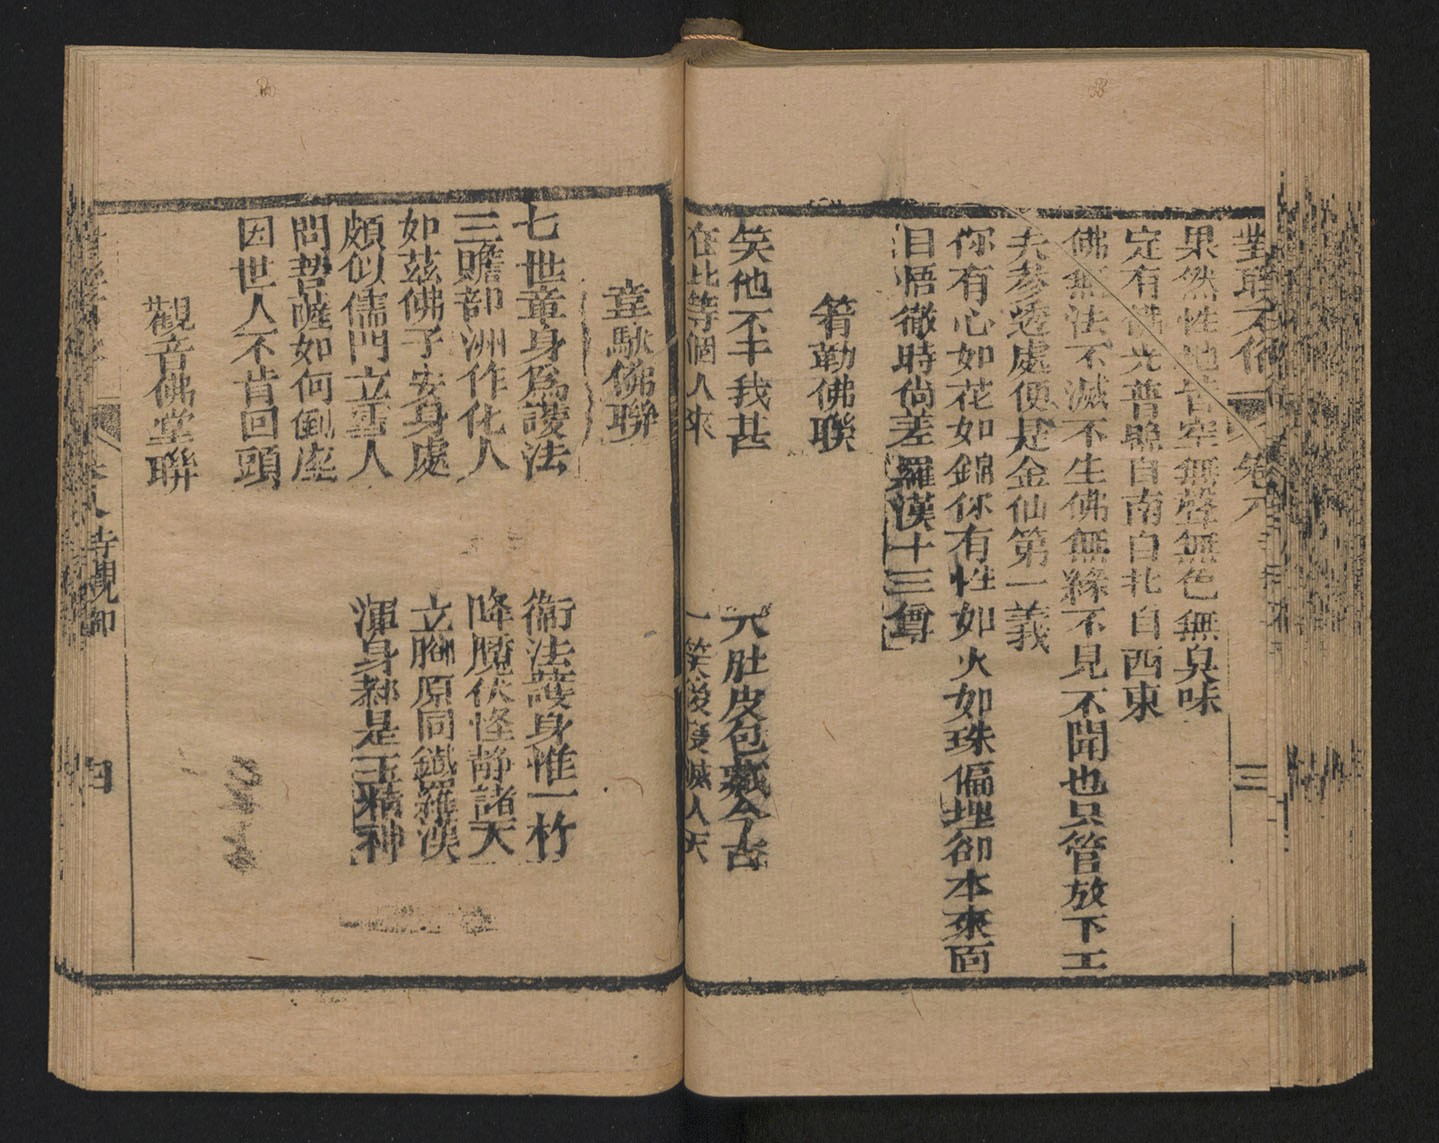 對聯不俗 卷八 三
果然性地皆空無聲無色無臭味
定有佛光普照自南自北自西東
佛無法不滅不生佛無緣不見不聞也只管放下工
夫參透處便是金仙第一義
你有心如花如錦你有性如火如珠偏埋卻本來面
目悟徹時尚差羅漢十三尊
笤勒佛聯
笑他不丰我甚 大肚皮包藏今古
在此等個人來 一笑後度滅人天
韋馱佛聯
七世童身爲護法 衞法護身惟一杵
三贍部洲作化人 降魔伏怪靜諸天
如茲佛子安身處 立腳原同鐵羅漢
頗似儒門立雪人 渾身都是玉精神
問菩薩如何倒座
因世人不肯回頭
觀音佛堂聯
卷八 寺觀 四